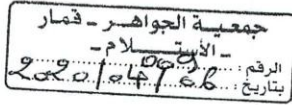 جمعية الجواهر - قمار
- الأستلام -
الرقم : 069
بتاريخ : 2020/04/06